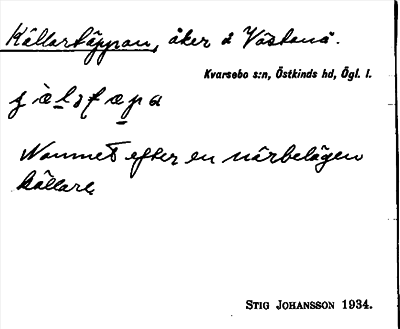 Källartäppan, åker å Västanå.
Kvarsebo s:n, Östkinds hd, Ögl. l.
Namnet efter en närbelägen
källare
STIG JOHANSSON 1934.